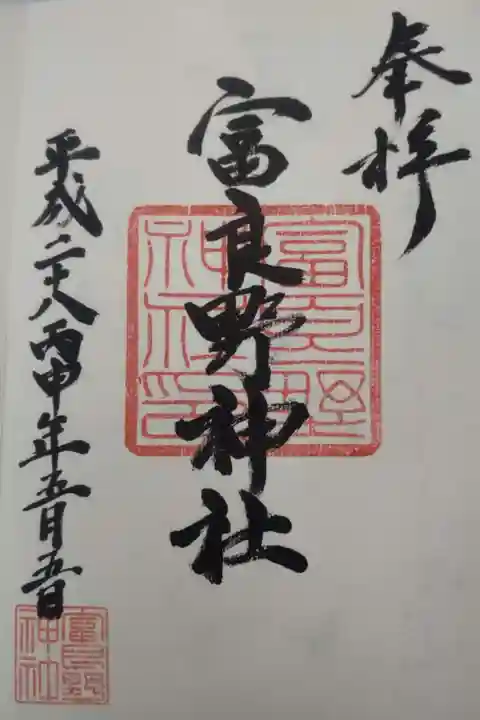 奉拝
富良野神社
富良野神社印
平成二十八丙申年五月五日
富良野神社